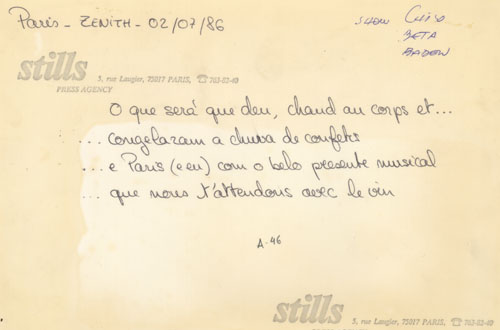 Paris - ZENITH - 02/07/86
SHOW
BETA
BADEN
stills
5, rue Laugier, 75017 PARIS, ☎ 763-83-40
PRESS AGENCY
O que será que deu, chaud au corps et...
... congelaram a chuva de confetis
... e Paris (e eu) com o belo presente musical
... que nous t'attendons avec le vin
A-46
stills
5, rue Laugier, 75017 PARIS, ☎ 763-83-40